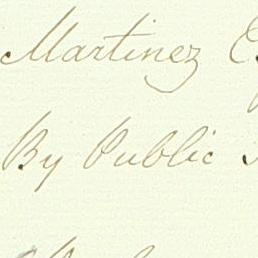 Martinez
By Public